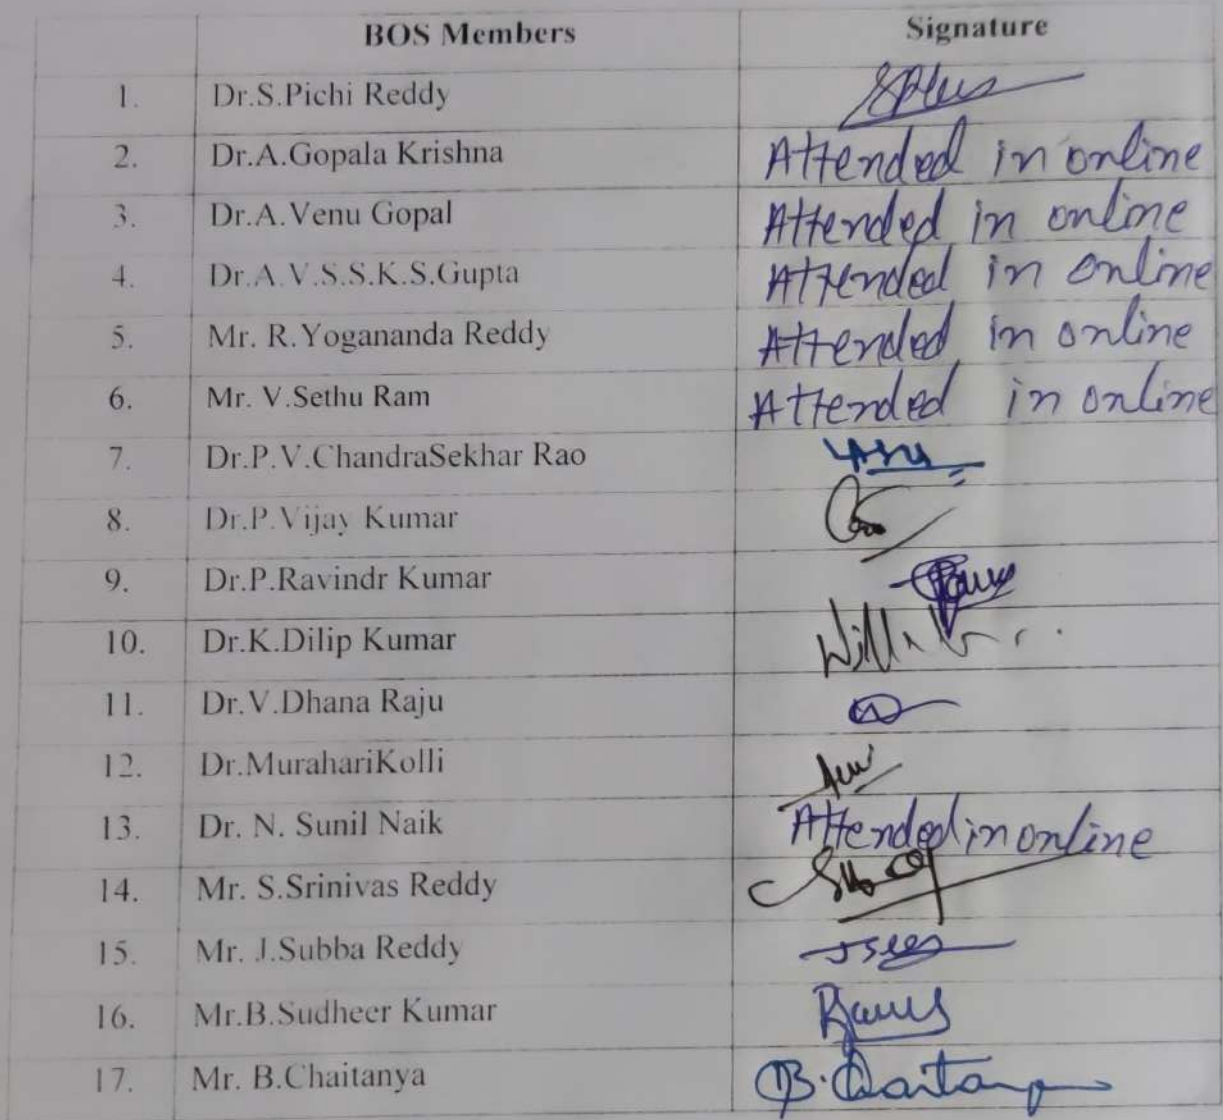 BOS Members Signature
1. Dr.S.Pichi Reddy
2. Dr.A.Gopala Krishna Attended in online
3. Dr.A.Venu Gopal Attended in online
4. Dr.A.V.S.S.K.S.Gupta Attended in online
5. Mr. R.Yogananda Reddy Attended in online
6. Mr. V.Sethu Ram Attended in online
7. Dr.P.V.ChandraSekhar Rao
8. Dr.P.Vijay Kumar
9. Dr.P.Ravindr Kumar
10. Dr.K.Dilip Kumar
11. Dr.V.Dhana Raju
12. Dr.MurahariKolli
13. Dr. N. Sunil Naik Attended in online
14. Mr. S.Srinivas Reddy
15. Mr. J.Subba Reddy
16. Mr.B.Sudheer Kumar
17. Mr. B.Chaitanya